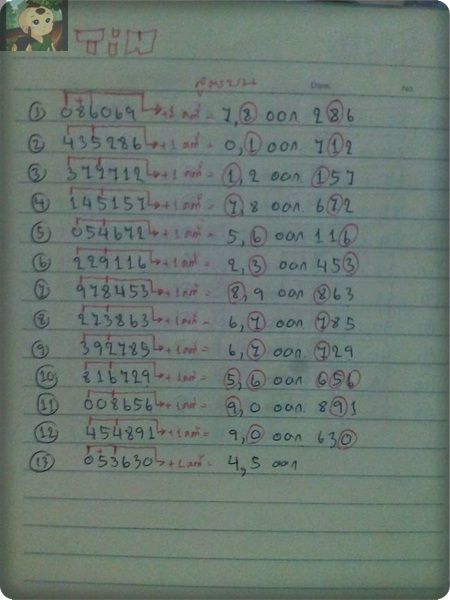 TiN
สูตรบน Date. No.
① 086069 → +1 คงที่ = 7,8 ออก 286
② 435286 → +1 คงที่ = 0,1 ออก 712
③ 379712 → +1 คงที่ = 1,2 ออก 157
④ 145157 → +1 คงที่ = 7,8 ออก 672
⑤ 054672 → +1 คงที่ = 5,6 ออก 116
⑥ 229116 → +1 คงที่ = 2,3 ออก 453
⑦ 978453 → +1 คงที่ = 8,9 ออก 863
⑧ 273863 → +1 คงที่ = 6,7 ออก 785
⑨ 392785 → +1 คงที่ = 6,7 ออก 729
⑩ 816729 → +1 คงที่ = 5,6 ออก 656
⑪ 008656 → +1 คงที่ = 9,0 ออก 891
⑫ 454891 → +1 คงที่ = 9,0 ออก 630
⑬ 053630 → +1 คงที่ = 4,5 ออก